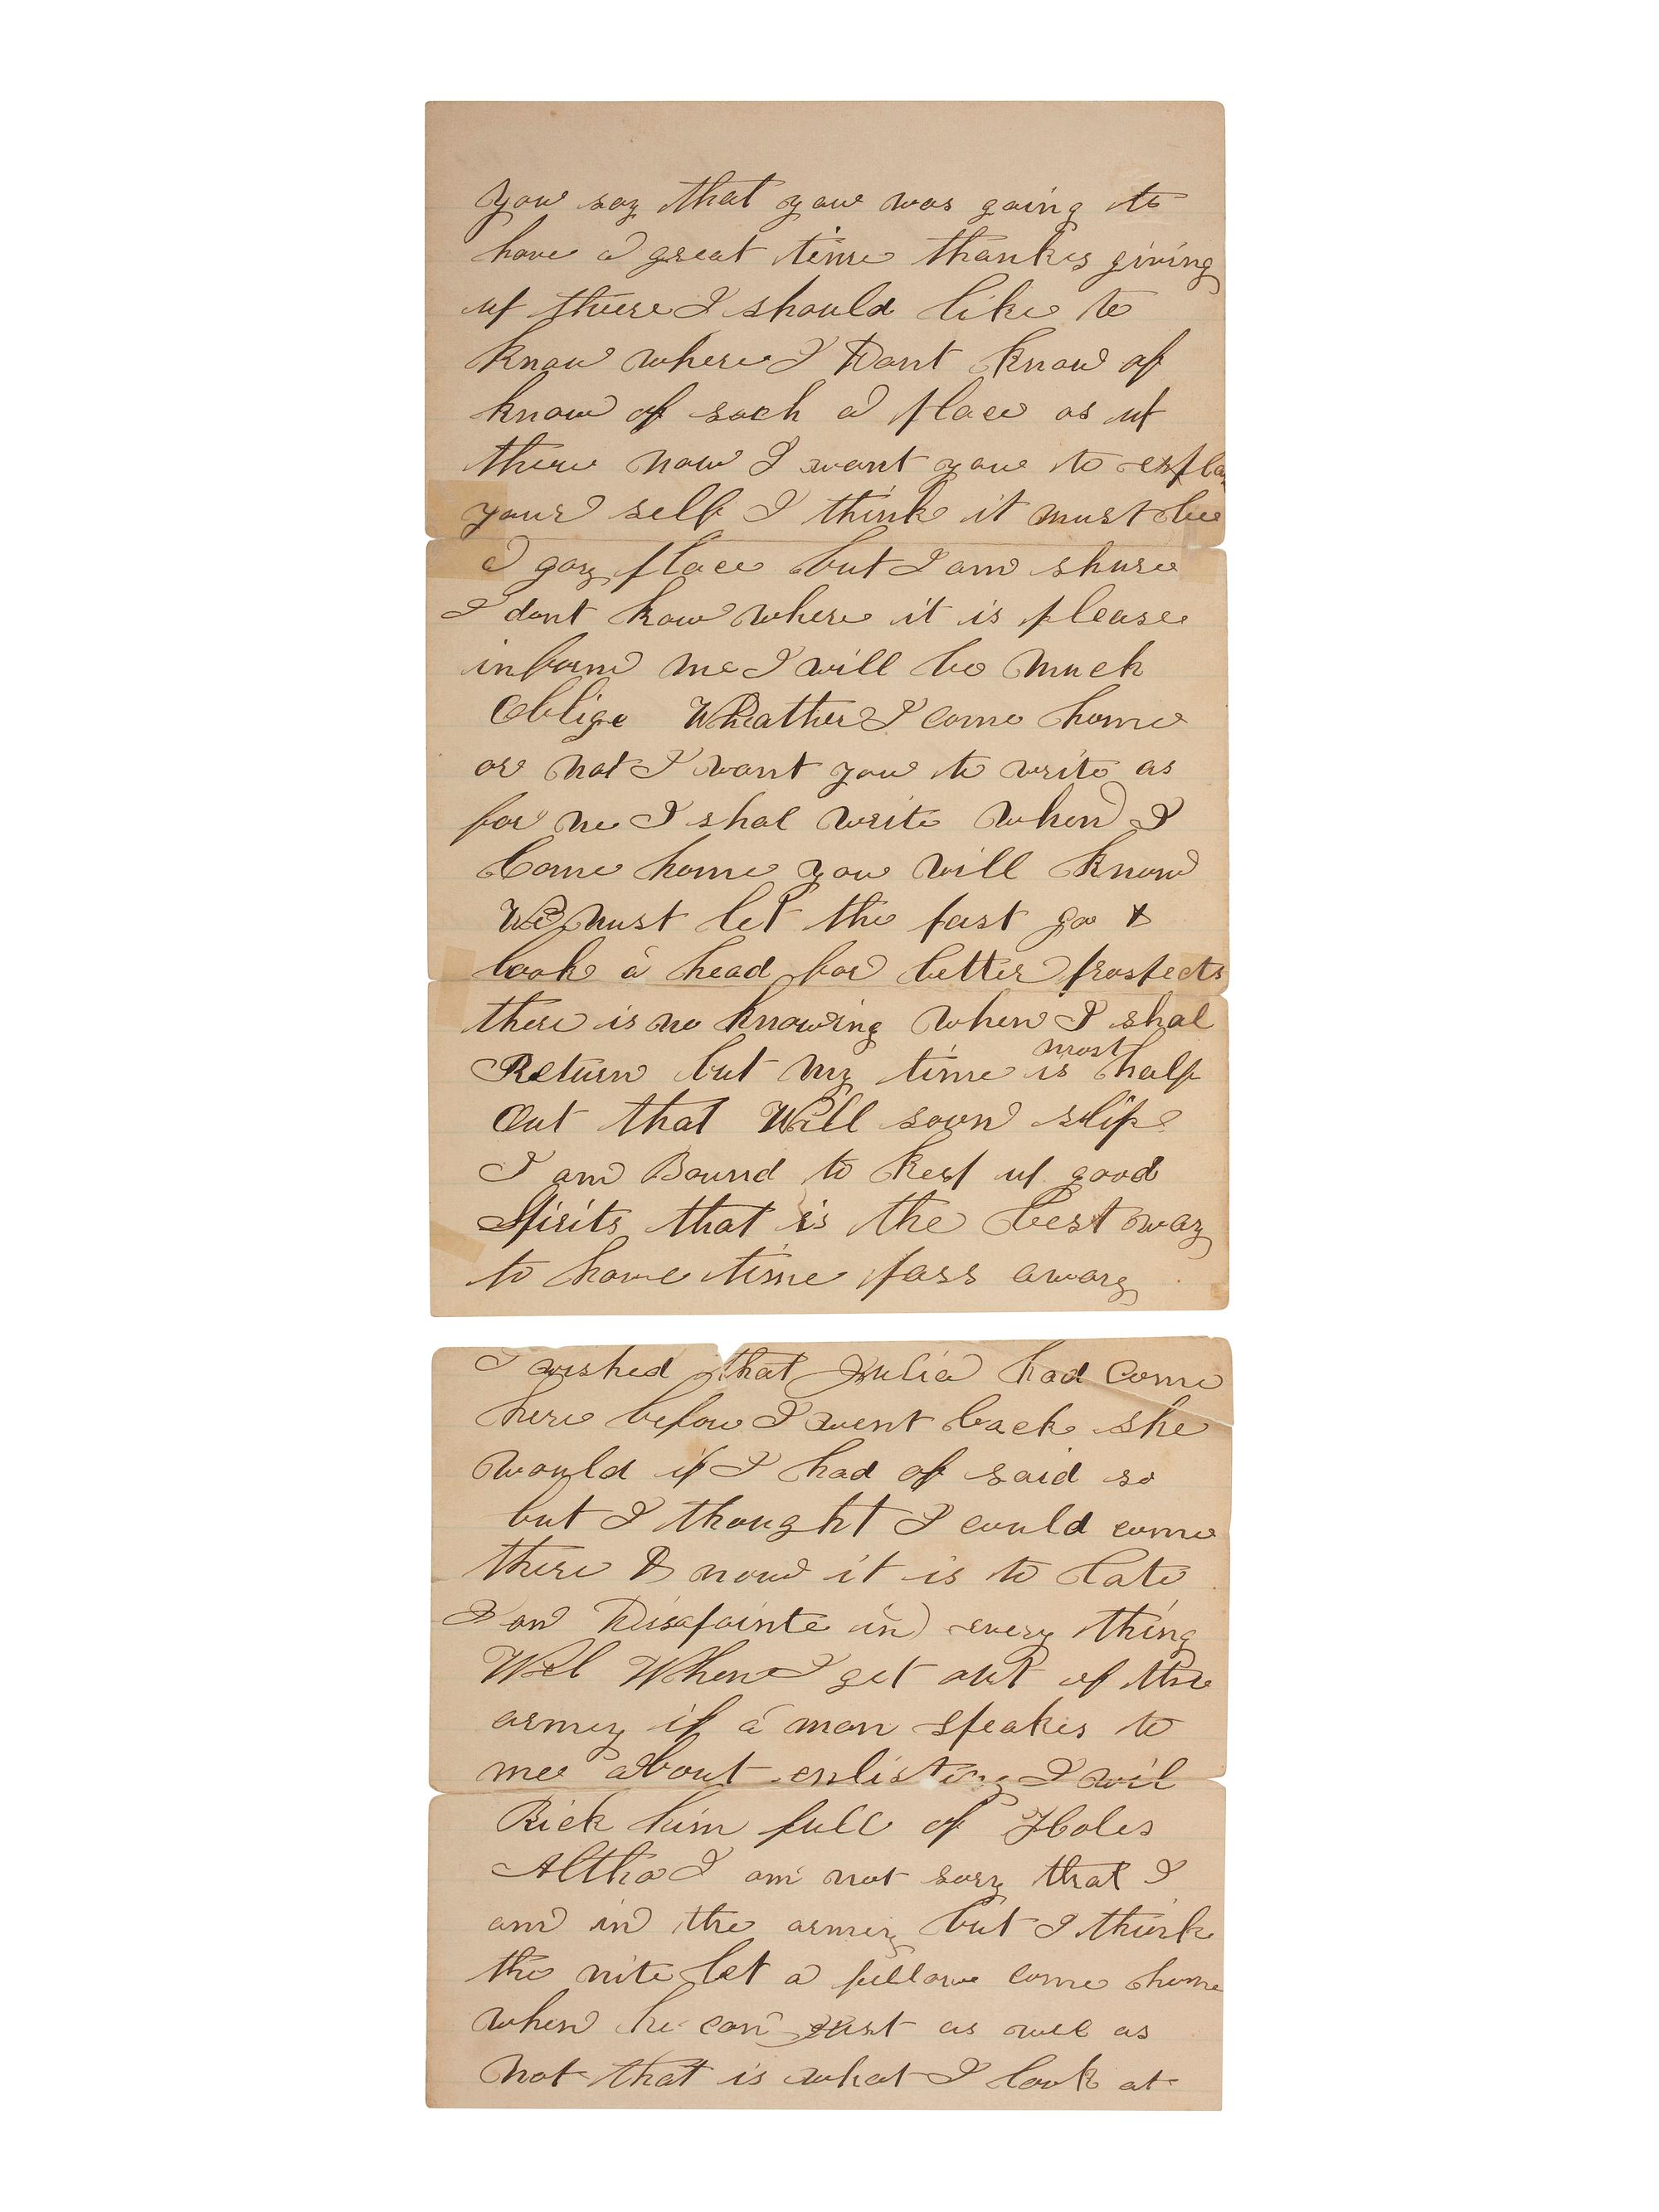 you say that you was going to
have a great time thanks giving
up there I should like to
know where I Dont know of
know of such a place as up
there now I want you to expla
your self I think it must be
a gay place but I am shure
I dont know where it is please
inform me I will be much
Oblige Wheather I come home
or not I want you to write as
for me I shal write when I
Come home you will know
We must let the past go &
look a head for better prospects
there is no knowing when I shal
most
Return but my time is half
Out that Will soon slip
I am Bound to keep up good
Spirits that is the best way
to have time pass away
I wished that Julia had Come
here before I went back she
would if I had of said so
but I thought I could come
there & now it is to late
I am Disapointe in every thing
Wel When I get out of the
army if a man speakes to
mee about enlisting I wil
Kick him full of Holes
Altho I am not sory that I
am in the army but I think
the mite let a fellow come home
when he can just as well as
Not that is what I look at